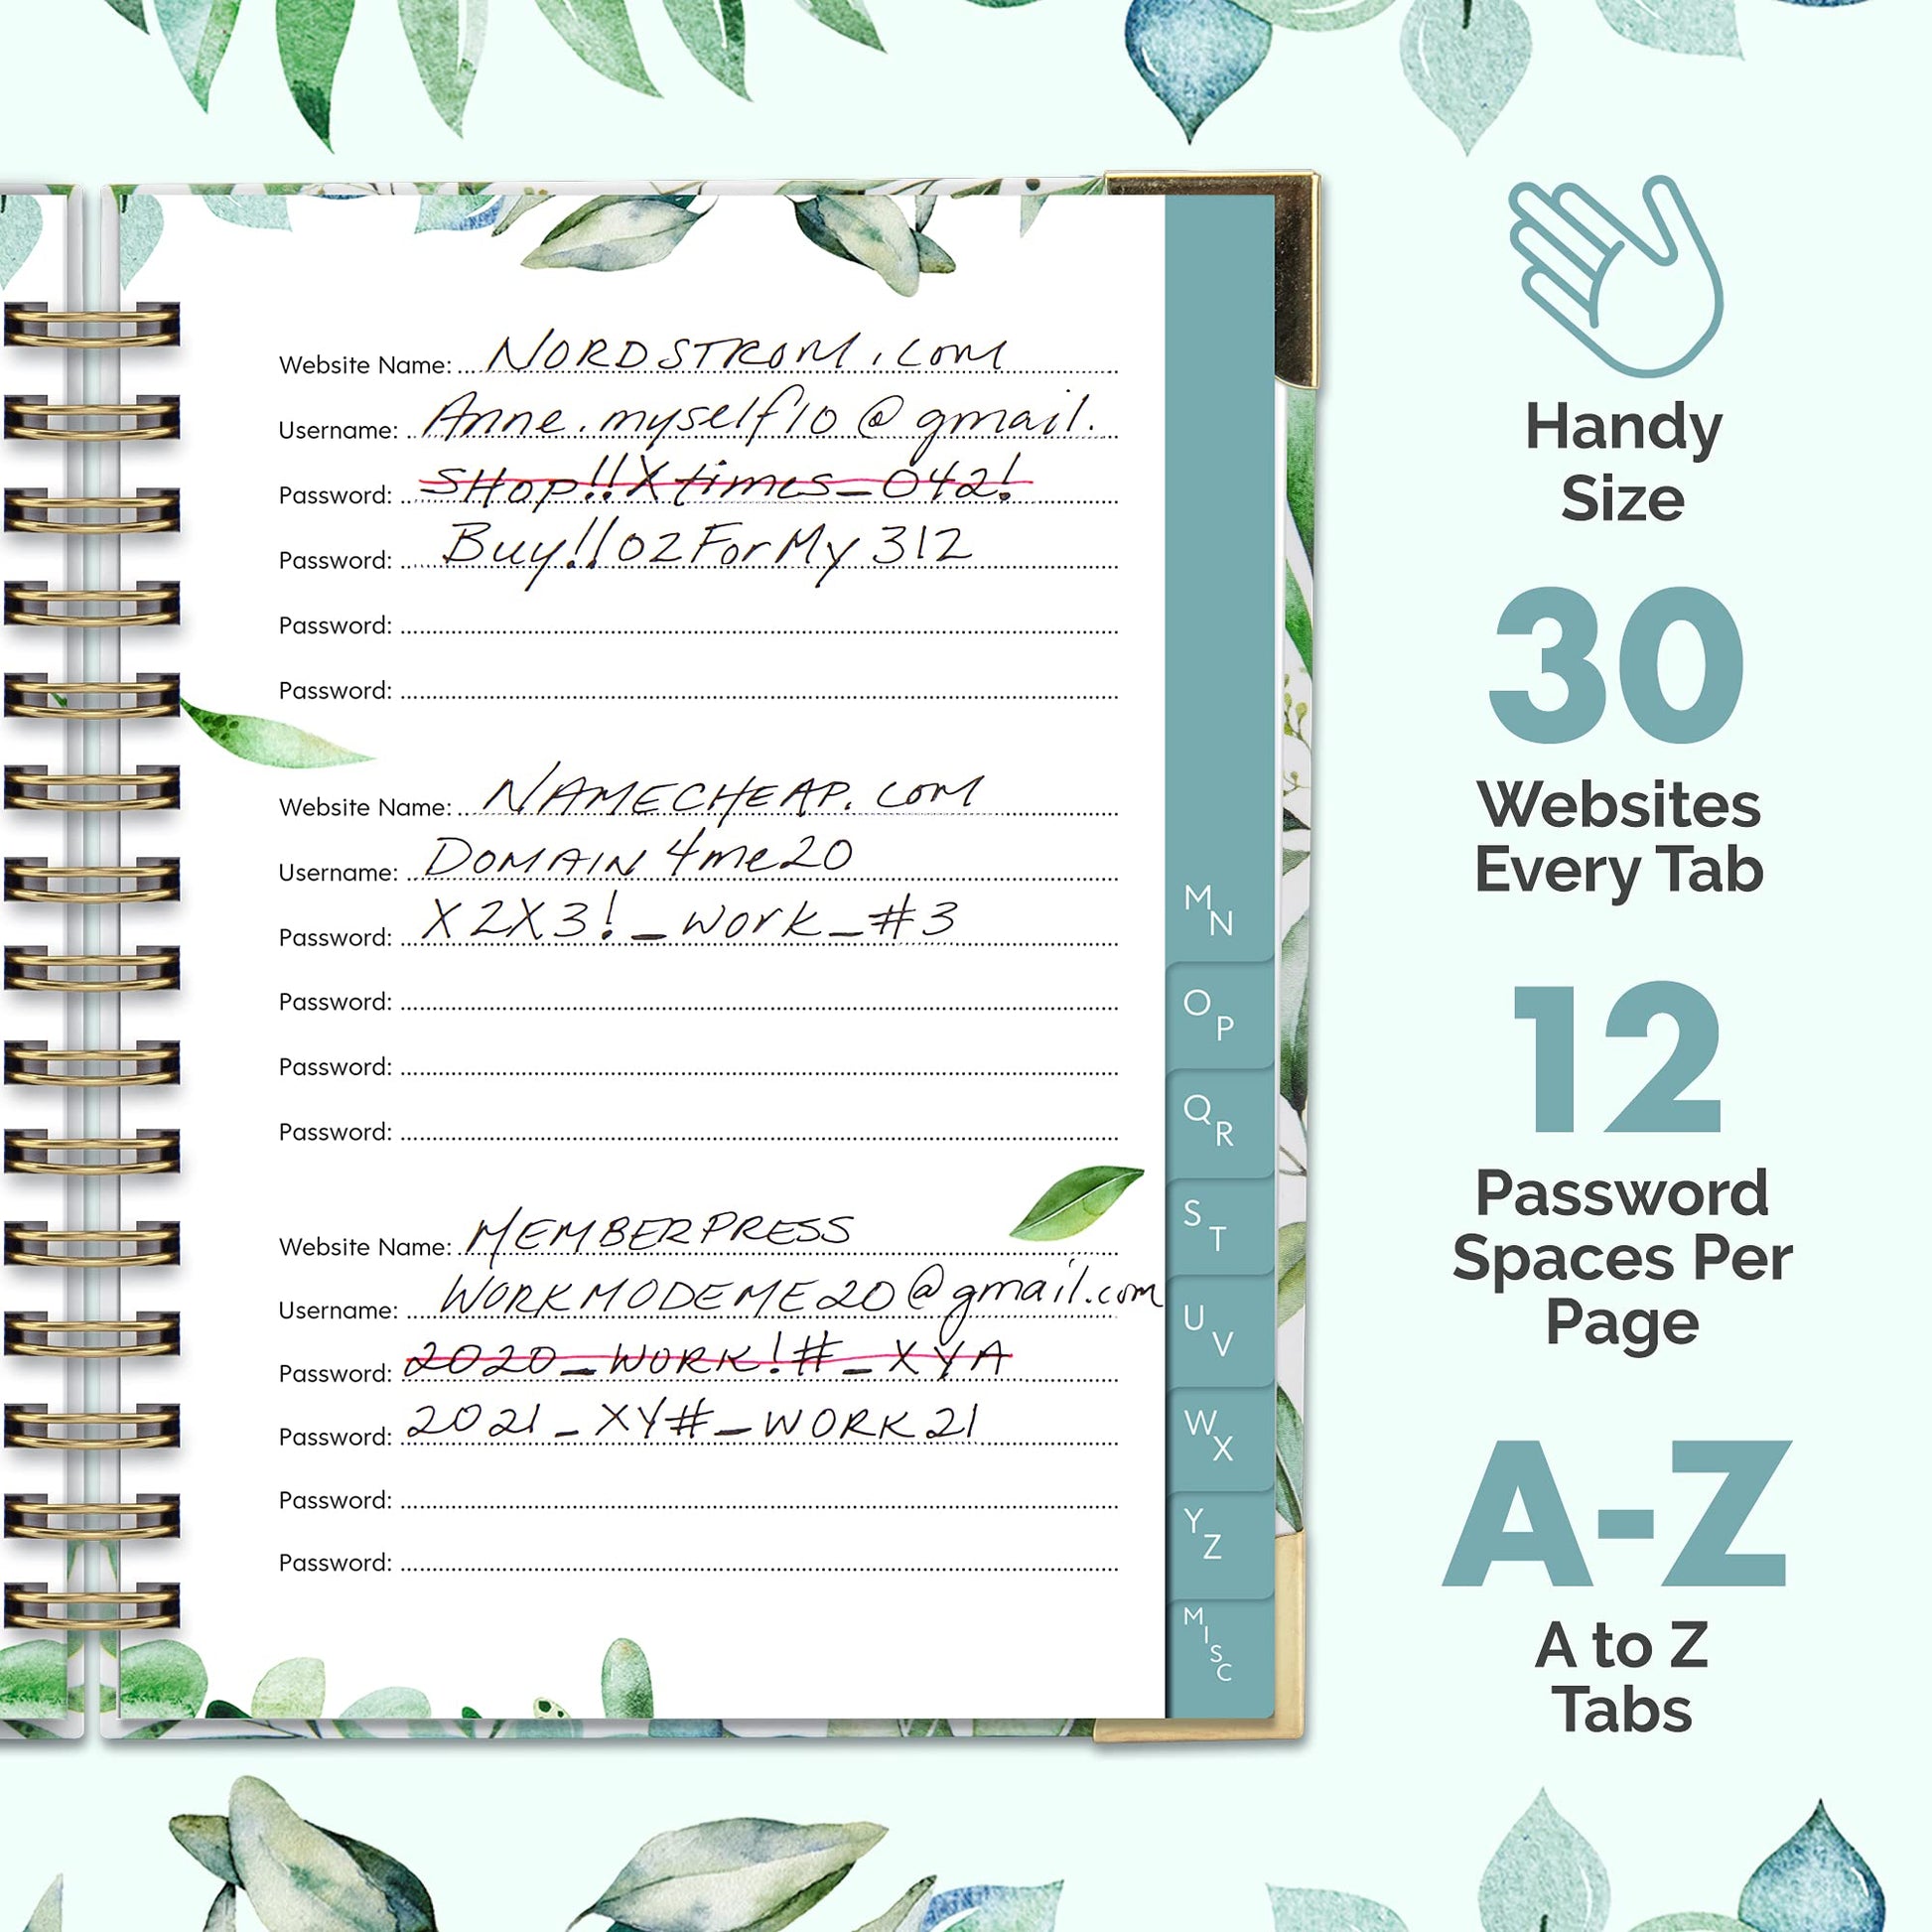 Website Name: NORDSTROM.COM
Username: Anne.myself10@gmail.
Password: SHop!!Xtimes_042!
Password: Buy!!02ForMy312
Password:
Password:
Website Name: NAMECHEAP.COM
Username: DOMAIN4me20
Password: X2X3!_work_#3
Password:
Password:
Password:
Website Name: MEMBERPRESS
Username: WORKMODEME20@gmail.com
Password: 2020_WORK!#_XYA
Password: 2021_XY#_WORK21
Password:
Password:
M
N
O
P
Q
R
S
T
U
V
W
X
Y
Z
MISC
Handy
Size
30
Websites
Every Tab
12
Password
Spaces Per
Page
A-Z
A to Z
Tabs